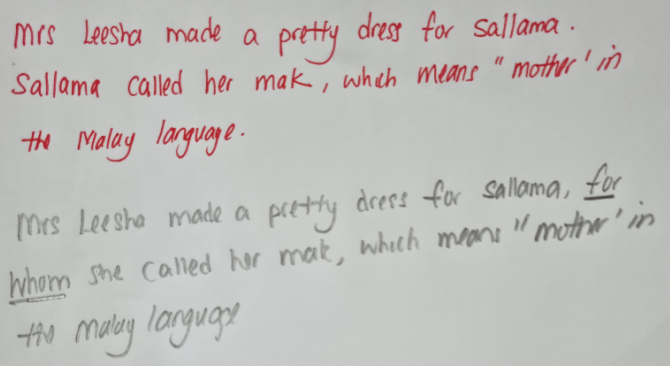 Mrs Leesha made a pretty dress for Sallama.
Sallama called her mak, which means "mother' in
the Malay language.
Mrs Leesha made a pretty dress for Sallama, for
whom she called her mak, which means "mother' in
the Malay language